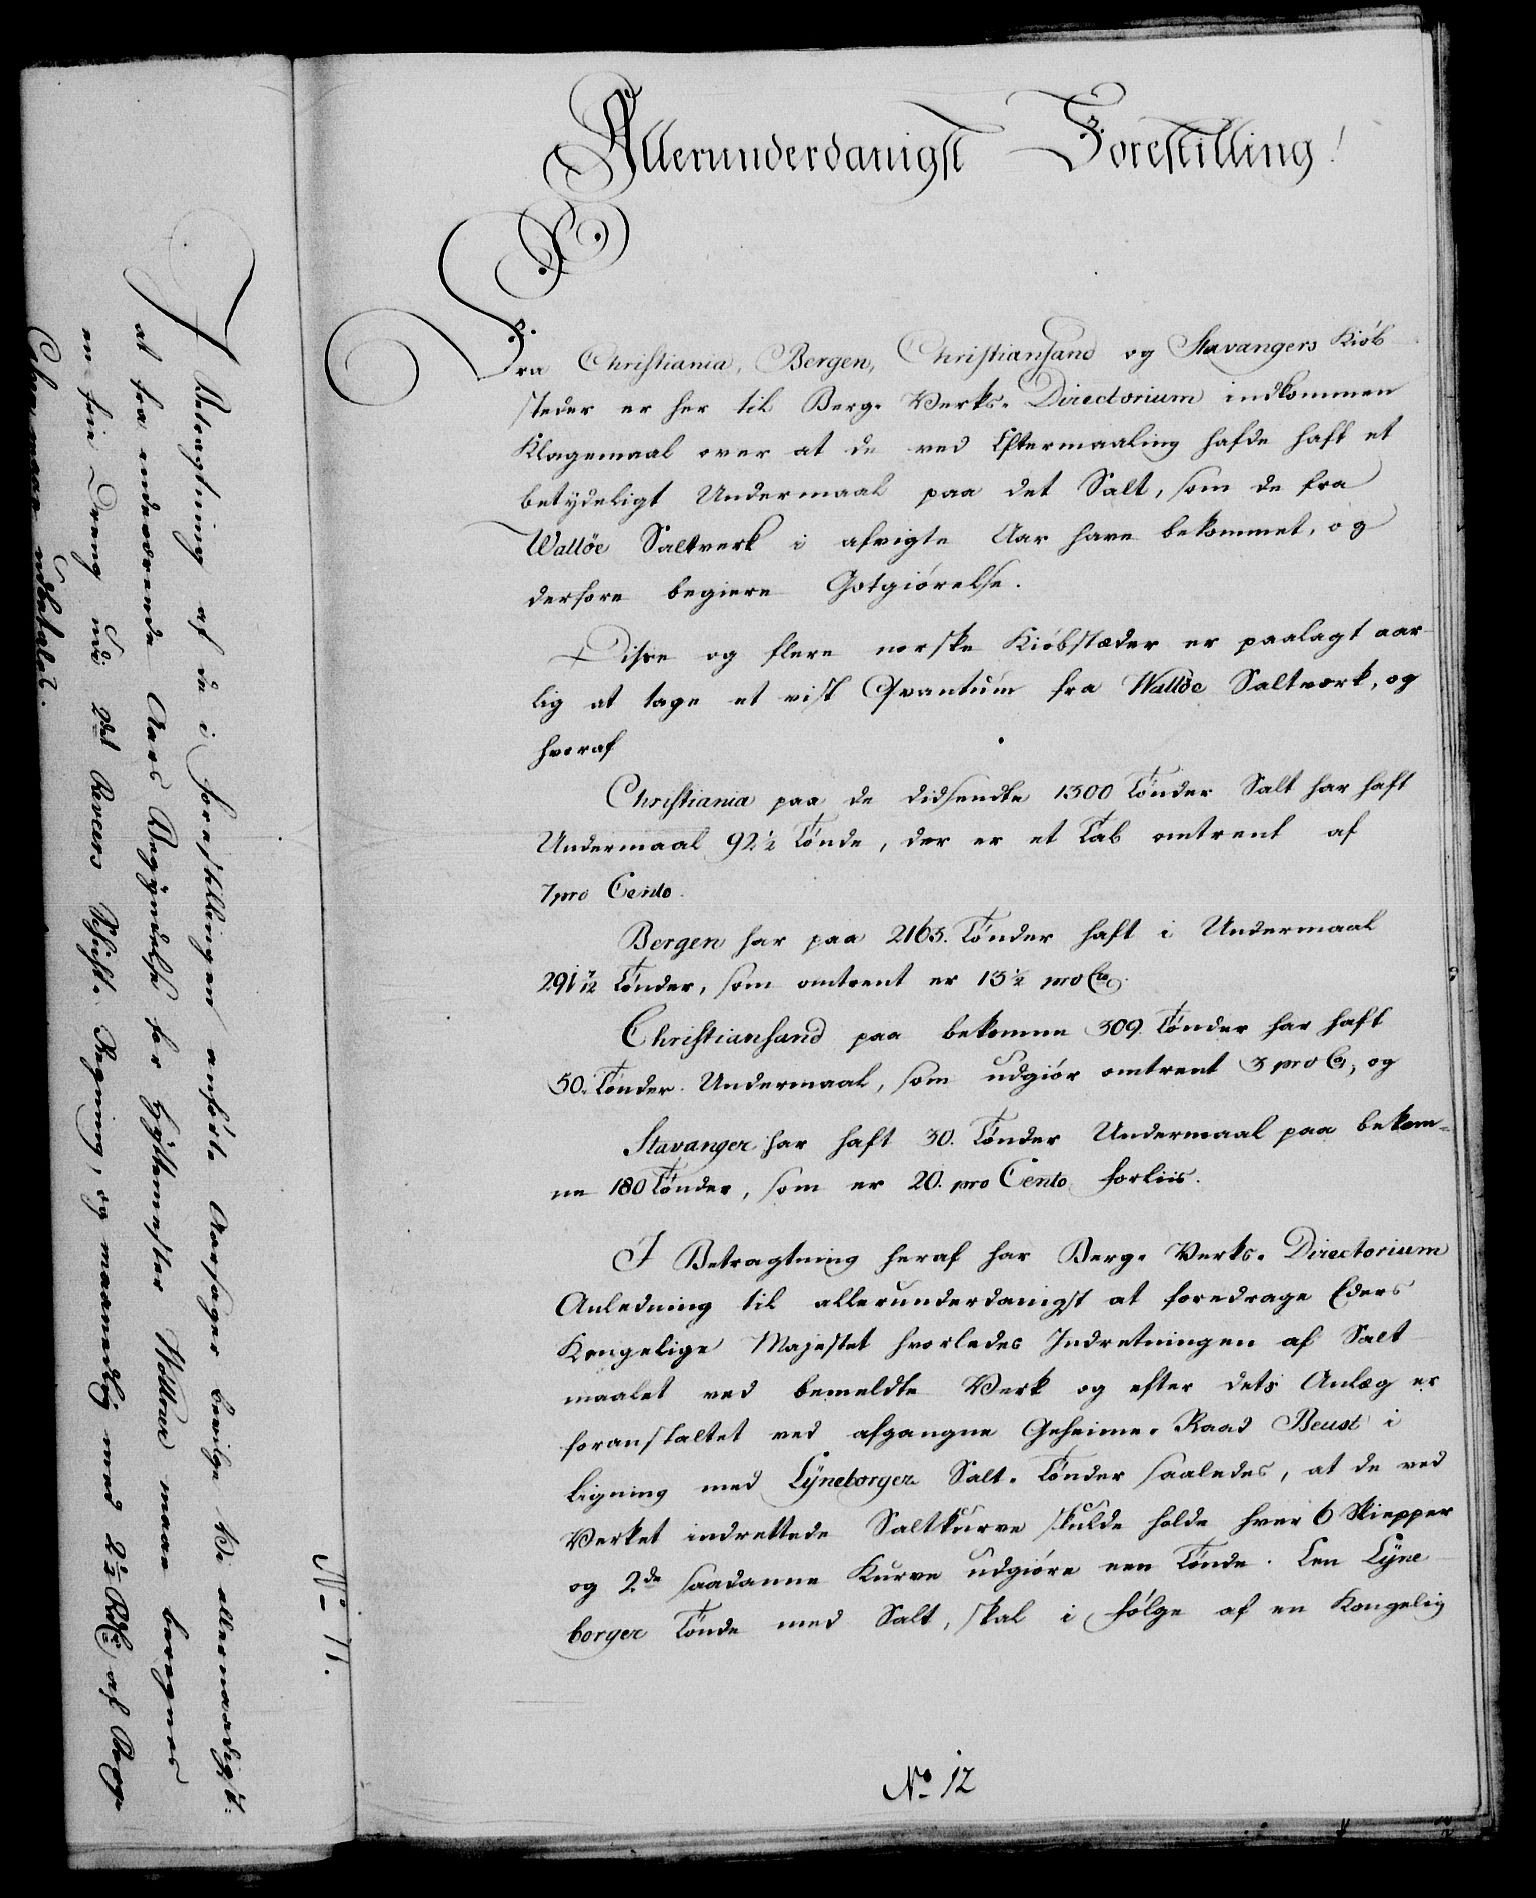 Allerunderdanigst Forestilling!
Fra Christiania, Bergen, Christiansand og Stavangers Kiöb
steder er her til Berg- Verks- Directorium indkommen
Klagemaal over at de ved Eftermaaling hafde haft et
betydeligt Undermaal paa det Salt, som de fra
Wallöe Saltverk i afvigte Aar have bekommet, og
derfore begiere Gotgiörelse.
Disse og flere norske Kiöbstæder er paalagt aar
lig at tage et vist Qvantum fra Wallöe Saltværk, og
hvoraf
Christiania paa de didsendte 1300 Tönder Salt har haft
Undermaal 92½ Tönde, der er et Tab omtrent af
7 pro Cento.
Bergen har paa 2165. Tönder haft i Undermaal
291 7/12 Tönder, som omtrent er 13½ pro Cto.
Christiansand paa bekomne 309. Tönder har haft
50. Tönder Undermaal, som udgiör omtrent 3 pro Co, og
Stavanger har haft 30. Tönder Undermaal paa bekom=
ne 180 Tönder, som er 20. pro Cento forliis.
I Betragtning heraf har Berg- Verks- Directorium
Anledning til allerunderdanigst at foredrage Eders
Kongelige Majestet hvorledes Indretningen af Salt
maalet ved bemeldte Verk og efter dets Anlæg er
foranstaltet ved afgangne Geheime- Raad Beust i
ligning med Lyneborger Salt- Tönder saaledes, at de ved
Verket indrettede Saltkurve skulde holde hver 6 Skiepper
og 2de saadanne Kurve udgiöre een Tönde. Een Lyne
borger Tönde med Salt, skal i fölge af en Kongelig
No 12
I Betragtning af de i Forestillingen anförte Aarsager bevilge Vi allernaadigst:
at fra indeværende Aars Begyndelse for Hyttemester maae beregnes
en frie Dreng Regning, og maanedlig med 2½ Rdr af
maae udbetales.
No 11.